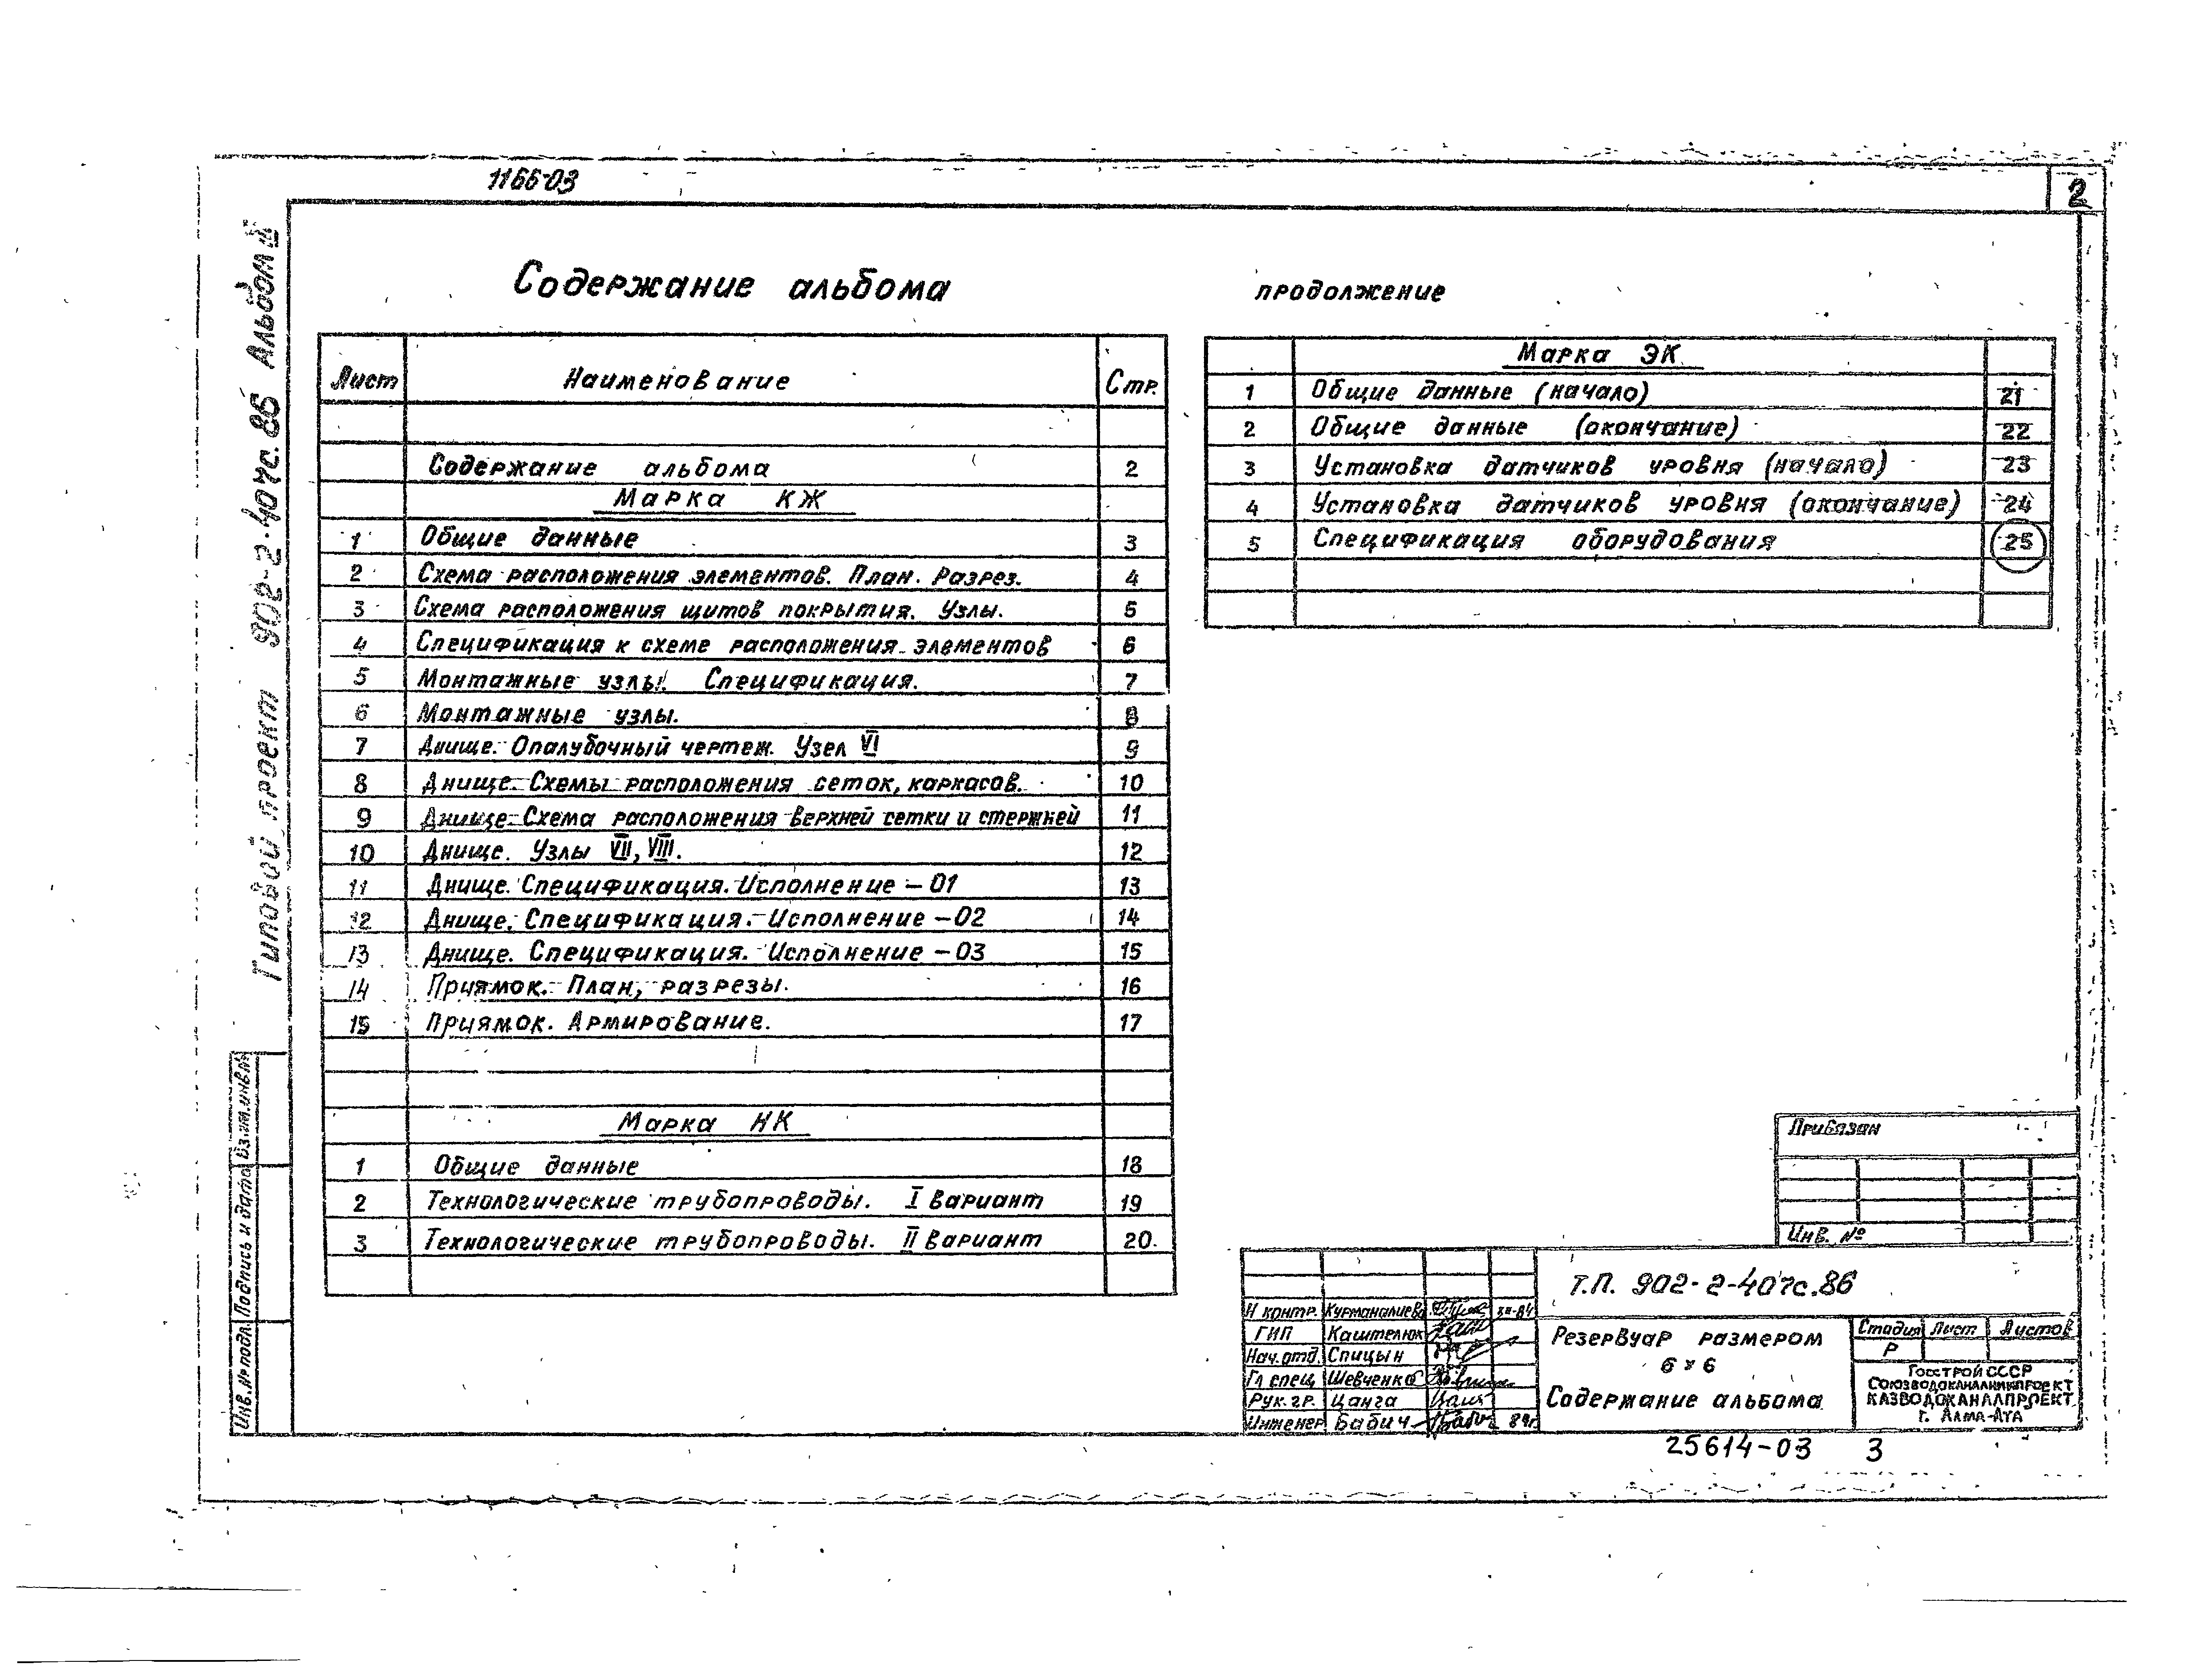 1166-03
2
Типовой проект 902-2-407с.86 Альбом
Содержание альбома
Лист Наименование Стр.
Содержание альбома 2
Марка КЖ
1 Общие данные 3
2 Схема расположения элементов. План. Разрез. 4
3 Схема расположения щитов покрытия. Узлы. 5
4 Спецификация к схеме расположения элементов 6
5 Монтажные узлы. Спецификация. 7
6 Монтажные узлы. 8
7 Днище. Опалубочный чертеж. Узел VI 9
8 Днище. Схемы расположения сеток, каркасов. 10
9 Днище. Схема расположения верхней сетки и стержней 11
10 Днище. Узлы VII, VIII. 12
11 Днище. Спецификация. Исполнение – 01 13
12 Днище. Спецификация. Исполнение – 02 14
13 Днище. Спецификация. Исполнение – 03 15
14 Приямок. План, разрезы. 16
15 Приямок. Армирование. 17
Марка НК
1 Общие данные 18
2 Технологические трубопроводы. I вариант 19
3 Технологические трубопроводы. II вариант 20
продолжение
Марка ЭК
1 Общие данные (начало) 21
2 Общие данные (окончание) 22
3 Установка датчиков уровня (начало) 23
4 Установка датчиков уровня (окончание) 24
5 Спецификация оборудования 25
Инв. № подл. Подпись и дата Взам. инв. №
Привязан
Инв. №
Т.П. 902-2-407с.86
Н контр. Курманалиева
ГИП Каштелюк
Нач. отд. Спицын
Гл спец Шевченко
Рук. гр. Цанга
Инженер Бабич 84г
Резервуар размером
6 х 6
Содержание альбома
Стадия Лист Листов
Р
Госстрой СССР
Союзводоканалниипроект
КАЗВОДОКАНАЛПРОЕКТ
г. Алма-Ата
25614-03 3